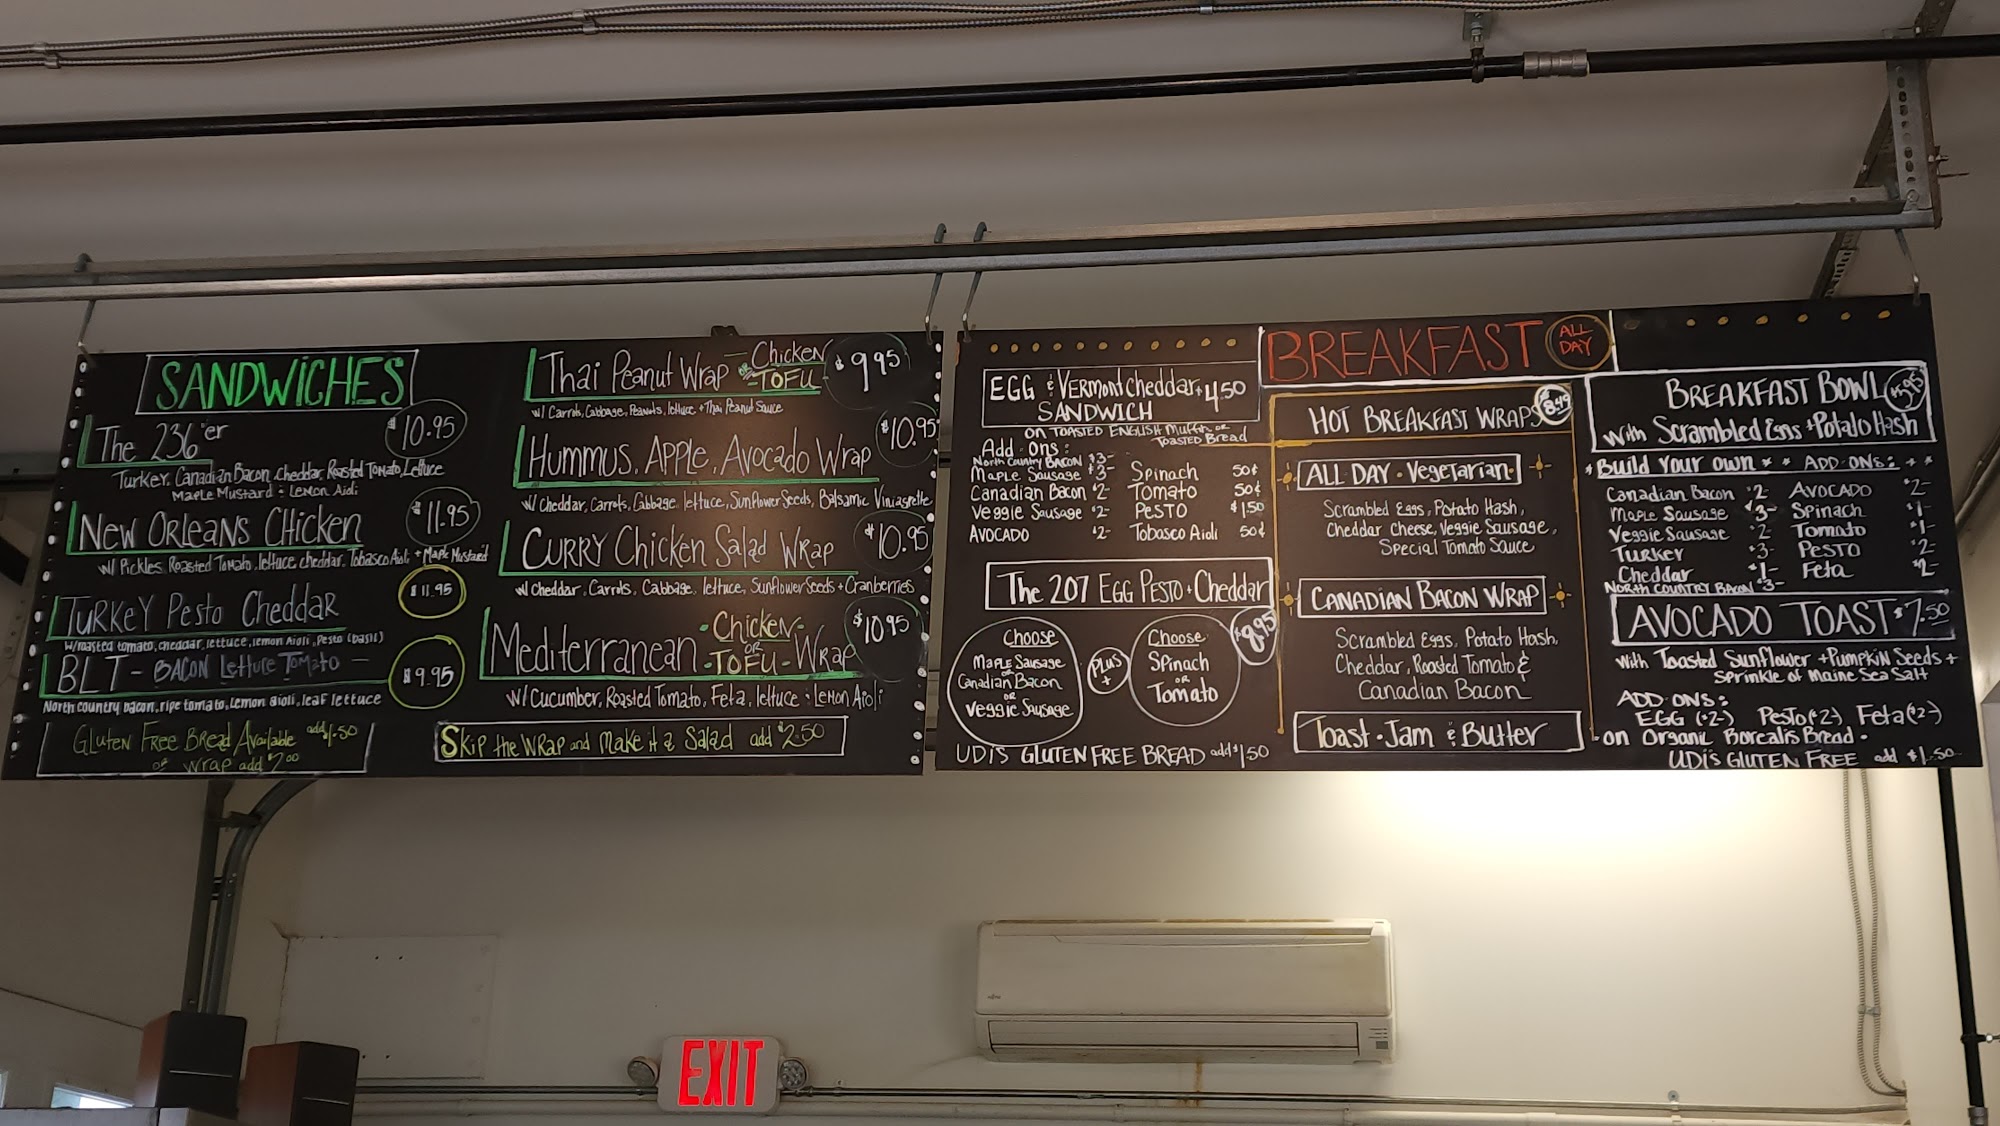 SANDWICHES
The 236'er $10.95
Turkey, Canadian Bacon, cheddar, Roasted Tomato, Lettuce
Maple Mustard & Lemon Aioli
New Orleans Chicken $11.95
w/ Pickles, Roasted Tomato, lettuce, cheddar, Tobasco Aioli + Maple Mustard
Turkey Pesto Cheddar $11.95
w/roasted tomato, cheddar, lettuce, lemon Aioli, Pesto (basil)
BLT - Bacon Lettuce Tomato — $9.95
North country bacon, ripe tomato, lemon aioli, leaf lettuce
Gluten Free Bread Available add $1.50
or wrap add $2.00
Thai Peanut Wrap — Chicken or -TOFU- $9.95
w/ Carrots, Cabbage, Peanuts, lettuce + Thai Peanut Sauce
Hummus, Apple, Avocado Wrap $10.95
w/ Cheddar, Carrots, Cabbage, lettuce, Sunflower Seeds, Balsamic Viniagrette
Curry Chicken Salad Wrap $10.95
w/ Cheddar, Carrots, Cabbage, lettuce, Sunflower Seeds + Cranberries
Mediterranean -Chicken- or -TOFU- Wrap $10.95
w/ Cucumber, Roasted Tomato, Feta, lettuce & Lemon Aioli
Skip the wrap and make it a Salad add $2.50
BREAKFAST ALL DAY
EGG & Vermont Cheddar $4.50
SANDWICH
on TOASTED ENGLISH Muffin or
TOASTED Bread
Add Ons:
North Country Bacon $3-
Maple Sausage $3- Spinach 50¢
Canadian Bacon $2- Tomato 50¢
Veggie Sausage $2- Pesto $1.50
AVOCADO $2- Tobasco Aioli 50¢
The 207 EGG Pesto + Cheddar
$8.95
Choose
Maple Sausage
or
Canadian Bacon
or
Veggie Sausage
PLUS +
Choose
Spinach
or
Tomato
UDIS GLUTEN FREE BREAD add $1.50
HOT BREAKFAST WRAPS $8.49
ALL DAY • Vegetarian •
Scrambled Eggs, Potato Hash,
Cheddar Cheese, Veggie Sausage,
Special Tomato Sauce
CANADIAN BACON WRAP
Scrambled Eggs, Potato Hash,
Cheddar, Roasted Tomato &
Canadian Bacon
Toast • Jam & Butter
BREAKFAST BOWL
with Scrambled Eggs + Potato Hash
Build your own * * ADD-ONS: * *
Canadian Bacon $2- AVOCADO $2-
Maple Sausage $3- Spinach $1-
Veggie Sausage $2 Tomato $1-
Turkey $3- PESTO $2-
Cheddar $1- Feta $2-
North Country Bacon $3-
AVOCADO TOAST $7.50
with Toasted Sunflower + Pumpkin Seeds +
Sprinkle of Maine Sea Salt
ADD-ONS:
EGG ($2-) Pesto ($2-) Feta ($2-)
on Organic Borealis Bread.
UDI'S GLUTEN FREE add $1.50
EXIT